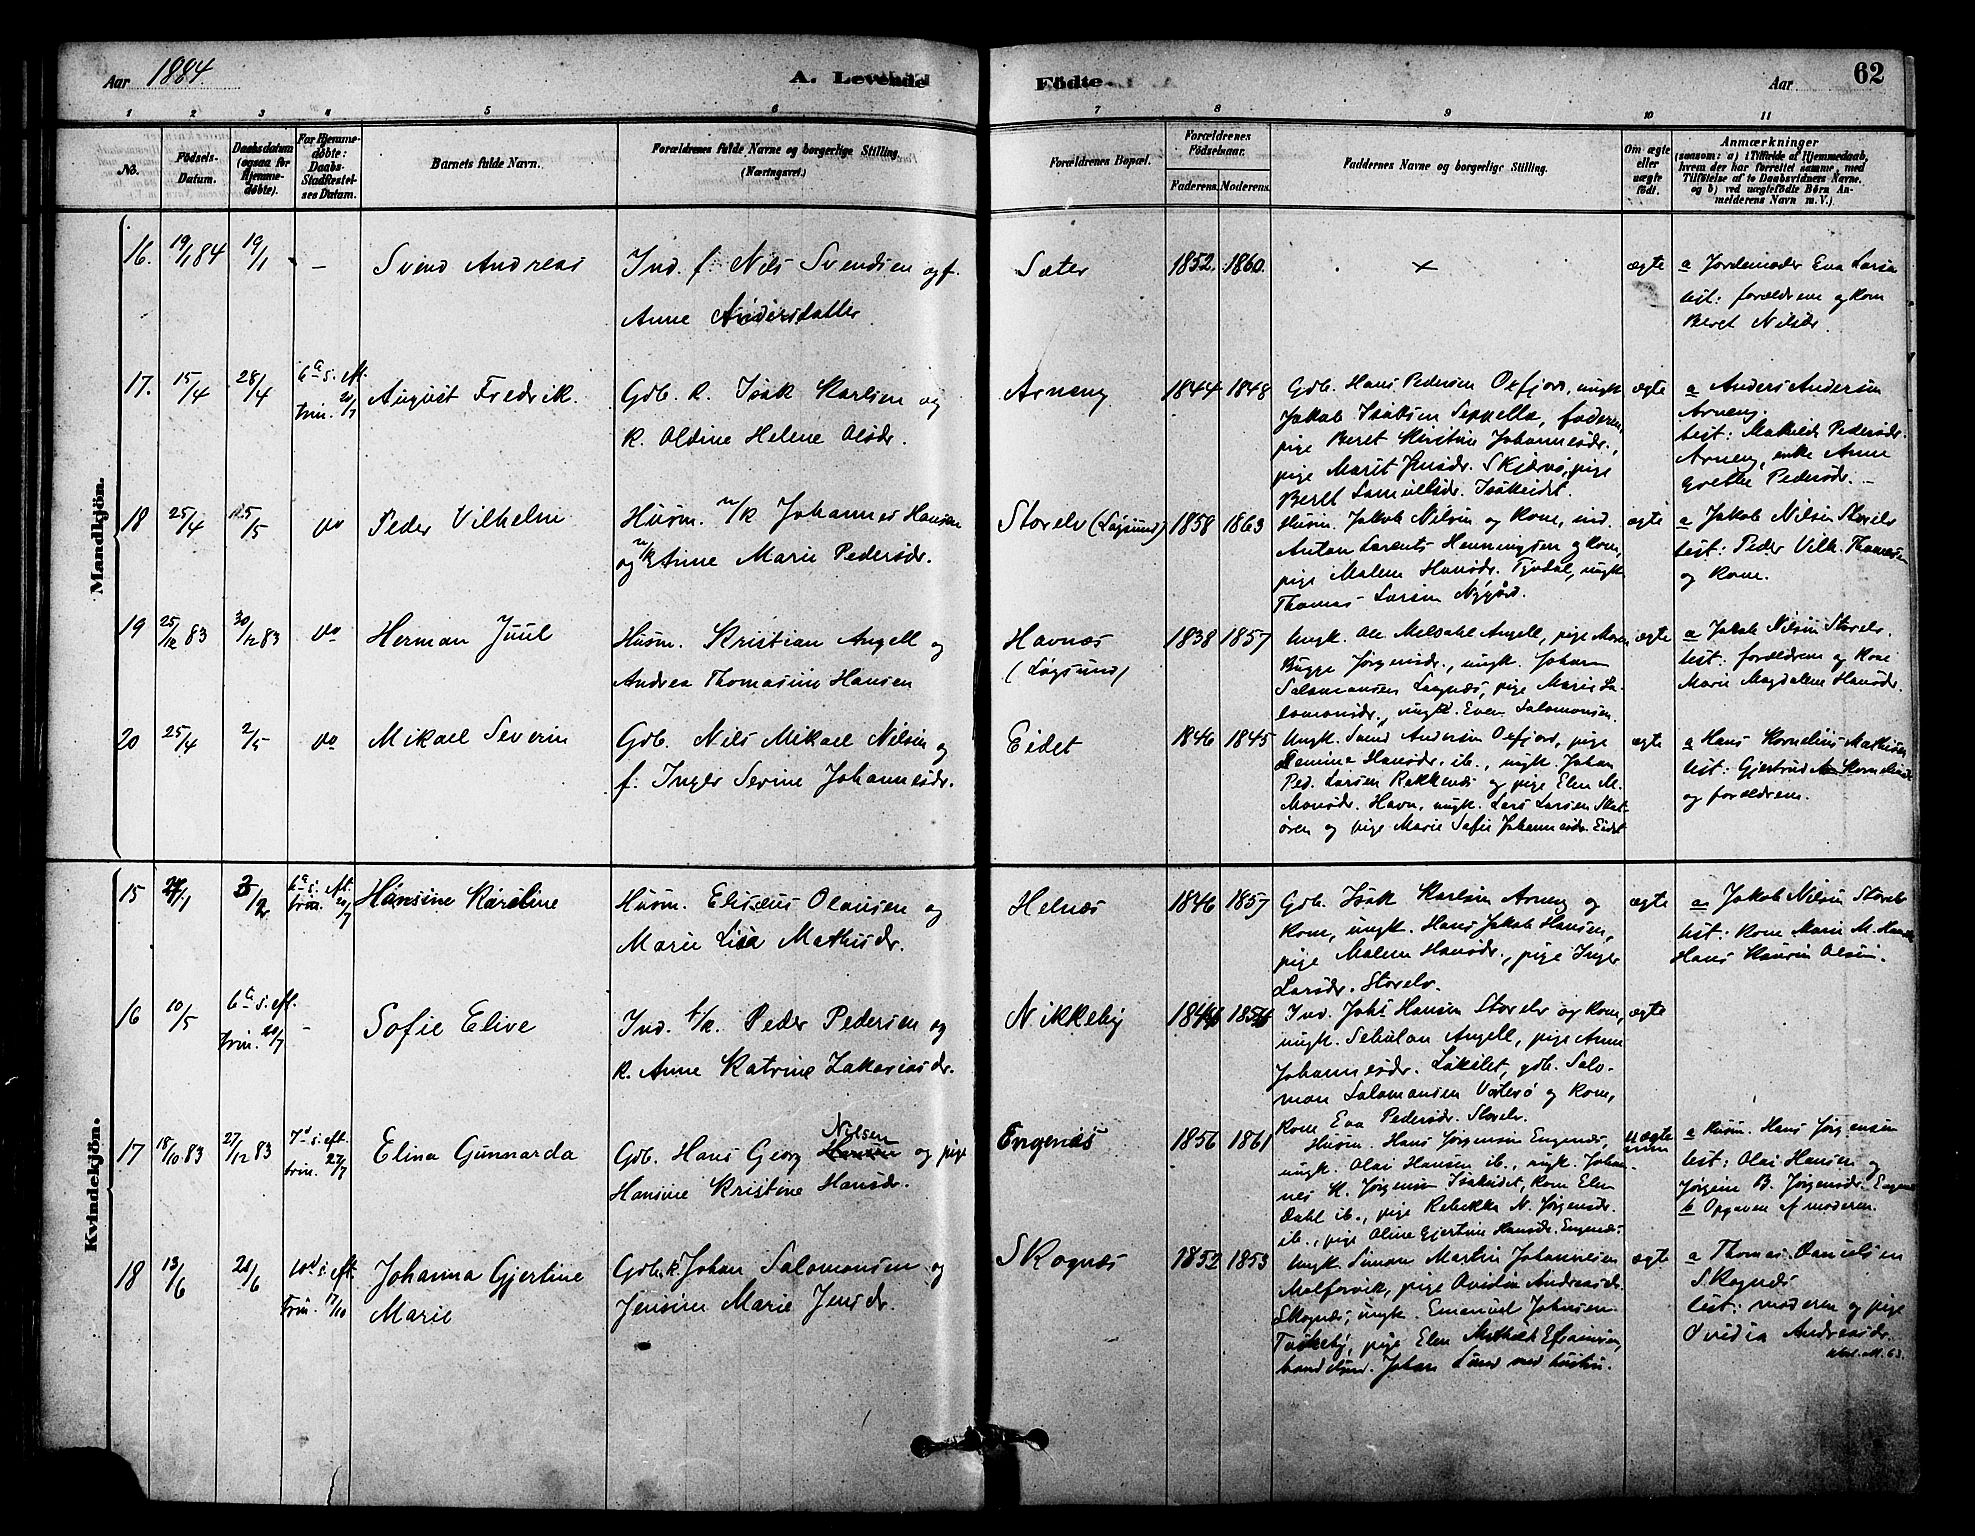 Aar 1884.
A. Levende
Födte.
Aar
62
1 2 3 4 5 6 7 8 9 10 11
No.
Födsels-
Datum.
Daabsdatum
(ogsaa for
Hjemme-
döbte).
For Hjemme-
döbte:
Daabs-
Stadfæstel-
ses Datum.
Barnets fulde Navn.
Forældrenes fulde Navne og borgerlige Stilling.
(Næringsvei.)
Forældrenes Bopæl.
Forældrenes
Födselsaar.
Faderens. Moderens.
Faddernes Navne og borgerlige Stilling.
Om ægte
eller
uægte
födt.
Anmærkninger
(saasom: a) i Tilfælde af Hjemmedaab,
hvem der har forrettet samme, med
Tilföielse af to Daabsvidners Navne,
og b) ved uægtefödte Börn An-
melderens Navn m. V.)
Mandkjön.
16. 19/1 84 19/1 - Svend Andreas
Ind. f. Nils Svendsen og f.
Anne Andersdatter
Sæter 1852. 1860. × ægte
a Jordemoder Eva Larsn
test: forældrene og kone
Beret Nilsdr.
17. 15/4 28/4 6a s. eft. trin. 20/7 August Fredrik.
Gdb. k. Isak Karlsen og
k. Oldine Helene Olsdr.
Arneng 1844 1848
Gdb. Hans Pedersen Oxfjord, ungk.
Jakob Isaksen Seppella, faderen,
pige Beret Kirstine Johannesdr.,
pige Marit Jensdr. Skjervö, pige
Beret Samuelsdr. Isakeidet.
ægte
a Anders Andersen
Arneng.
test: Mathilde Pedersdr.
Arneng, enke Anne
Grethe Pedersdr. -
18 25/4 /5 do Peder Vilhelm
Husm. n/k Johannes Hansen
og n/k Anne Marie Pedersdr.
Storelv (Lögsund) 1858 1863
Husm. Jakob Nilsen og kone, ind.
Anton Larents Henningsen og kone,
pige Malene Hansdr. , ungk.
Thomas Larsen Nygård.
ægte
a Jakob Nilsen Storelv
test: Peder Vilh. Thomesen
og kone.
19 25/12 83 30/12 83 do Herman Juul
Husm. Kristian Angell og
Andrea Thomasine Hansen
Havnæs
(Lögsund) 1838 1857
Ungk. Ole Melsdahl Angell, pige Maren
Bugge Jörgensdr., ungk. Johan
Salamonsen Laugnæs, pige Marie Sa-
lomonsdr., ungk. Even Salomonsen.
ægte
a Jakob Nilsen Storelv.
test. forældrene og kone
Marie Magdalene Hansdr.
20 25/4 2/5 do Mikael Severin
Gdb. Nils Mikael Nilsen og
f. Inger Sevine Johannesdr.
Eidet 1846 1845
Ungk. Svend Andersen Oxfjord, pige
Hansdr. ib., ungk. Johan
Ped. Larsen Rekkenæs og pige Elen M.
Monsdr. Havn, ungk. Lars Larsen Skat-
ören og pige Marie Sofie Johannesdr. Eidet
ægte
a Hans Kornelius Mathisen
test: Gjertrud Kornelius
og forældrene.
Kvindekjön.
15 /1 /2 6a s. eft. trin. 20/7 Hansine Karoline
Husm. Eliseus Olausen og
Marie Lisa Mathisdr.
Helnæs 1846 1857
Gdb. Isak Karlsen Arneng og
kone, ungk. Hans Jakob Hansen,
pige Malene Hansdr., pige Inger
Larsdr. Storelv.
ægte
a Jakob Nilsen Storelv
test: kone Marie M. Hansdr
Hans Olsen.
16 10/5 6a s. eft. trin. 20/7 - Sofie Elive
Ind. t/k. Peder Pedersen og
k. Anne Katrine Zakariasdr.
Nikkeby
Ind. Johs Hansen Storelv og kone,
ungk. Sebulon Angell, pige Anne
Johannesdr. , gdb. Salo-
mon Salamonsen Vorterö og kone,
kone Eva Pedersdr. Storelv.
ægte
17 18/10 83 27/12 83 7d s. eft. trin. 27/7 Elina Gunnarda
Gdb. Hans Georg Nilsen og pige
Hansine Kristine Hansdr.
Engenæs 1856 1861
Husm. Hans Jörgensen Engenæs,
ungk. Olai Hansen ib., ungk. Johan-
nes H. Jörgensen Isakeidet, kone Elen
Dahl ib., pige Rebekka N. Jörgensdr.
ib., pige Oline Gjertine Hansdr. Engenæs.
uægte
a husm. Hans Jörgensen
test: Olai Hansen og
Jörgine B. Jörgensdr. Engenæs
b Opgaven af moderen.
18 13/6 /6 10d s. eft. Trin. /10 Johanna Gjertine
Marie
Gdb. k. Johan Salomonsen og
Jensine Marie Jensdr.
Skognæs 1852 1853
Ungk. Simon Martin Johannesen
Molforvik, pige Ovidia Andreasdr.
Skognæs, ungk. Emanuel Johnsen
, pige Elen Efraimsen,
handelsm. Johan Lund med hustru.
ægte
a Thomas Danielsen
Skognæs
test: moderen og pige
Ovidia Andreasdr.